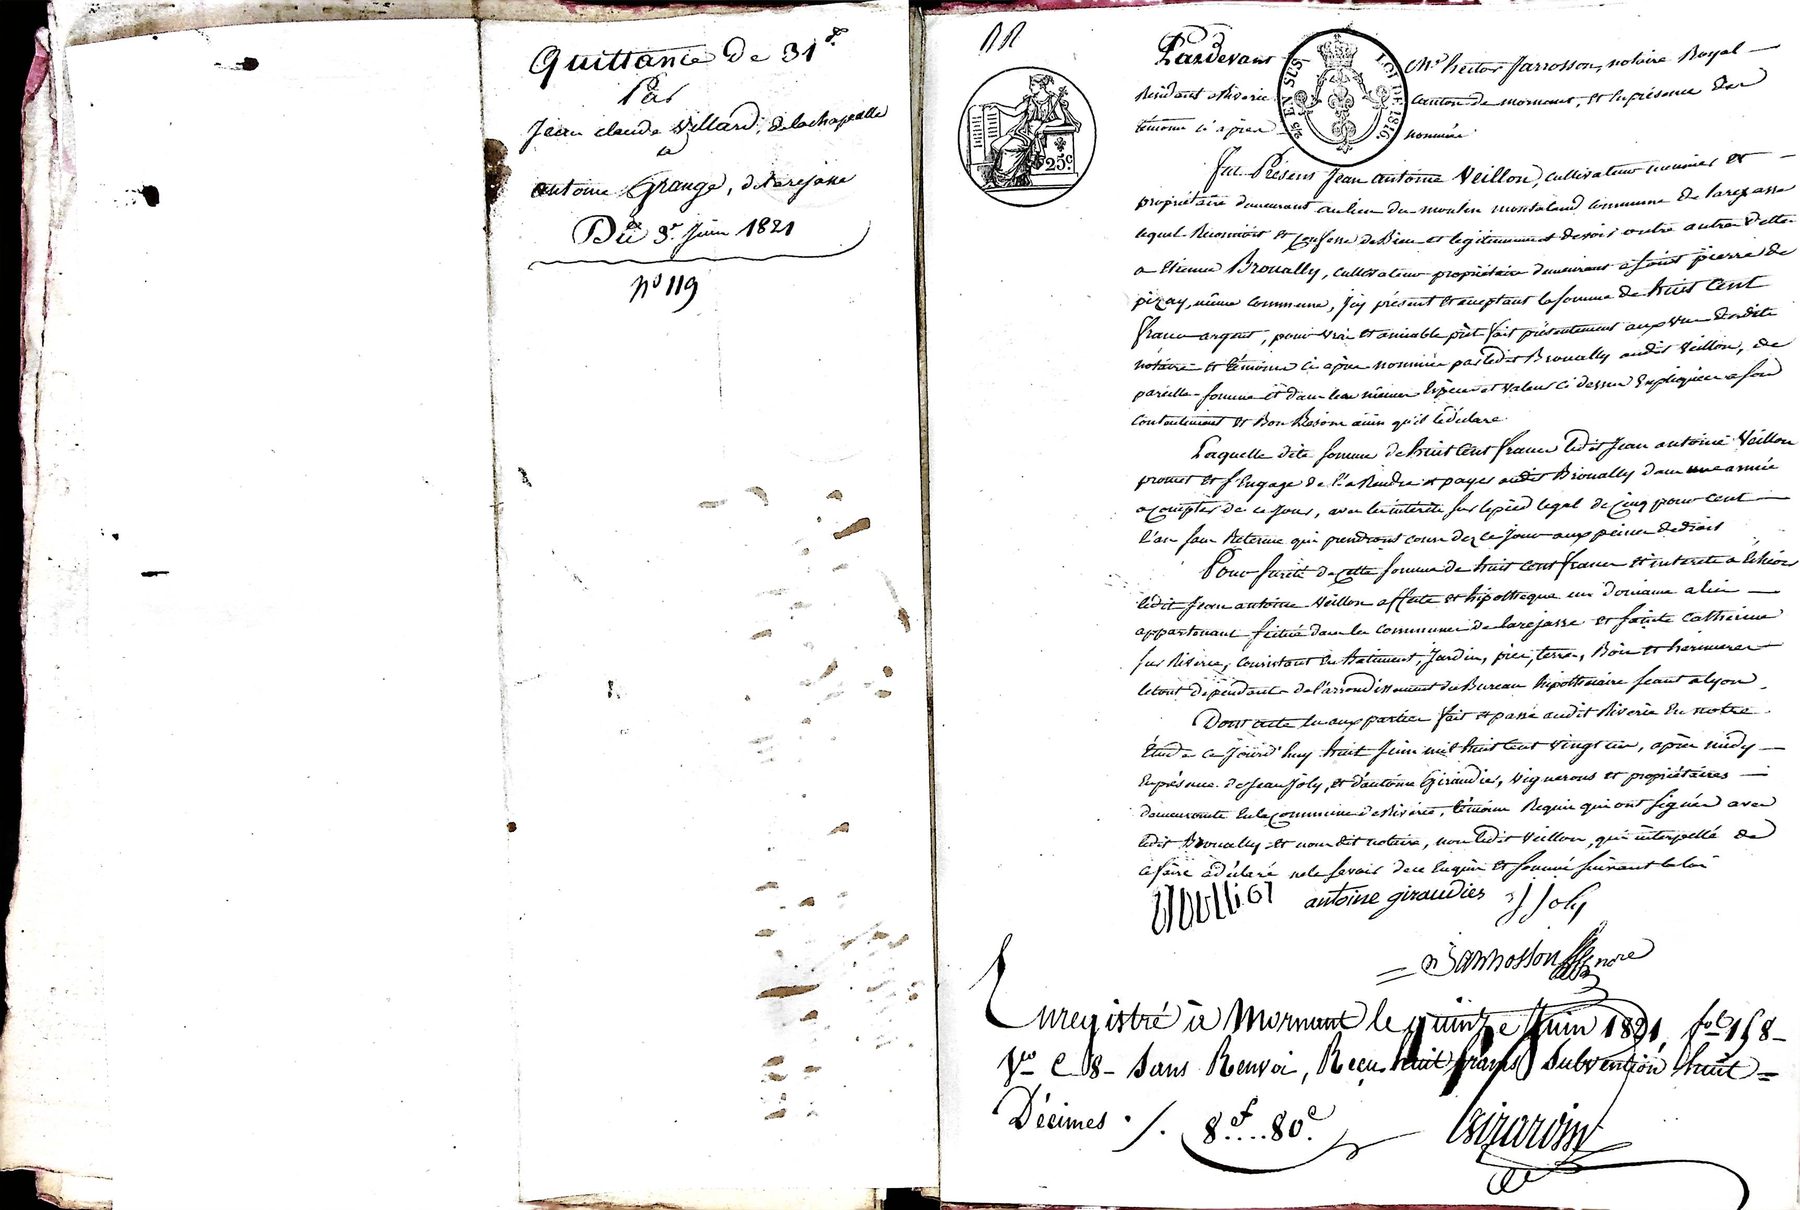 Quittance de 31 f.
Par
Jean claude Villard, de lachapelle
a
antoine Grange, de Larejasse
Du 3 Juin 1821
N° 119
Pardevant Me hector Jarrosson, notaire Royal
Résidant a Riverie canton de mornant, et En présence des
témoins ci après nommés.
EN SUS
LOI DE 1816.
25c.
Fut Présens Jean antoine Veillon, cultivateur meunier et
propriétaire demeurant au lieu du moulin commune de larejasse
lequel Reconnait et Confesse de Bien et légitimement devoir outre autre dette
a Etienne Broually, cultivateur propriétaire demeurant a saint pierre de
pizay, même commune, Icy présent et acceptant la somme de huit Cent
francs argent, pour vrai et amiable prêt fait présentement aux vue desdits
notaire et témoins ci après nommés par ledit Broually audit Veillon, de
pareille somme et dans les mêmes Espèces et valeurs ci dessus Expliquées a son
Contentement et Bon Besoin ainsi qu'il le déclare
Laquelle dite somme de huit Cent francs ledit Jean antoine Veillon
promet et s'Engage de la Rendre et payer audit Broually dans une année
a compter de ce Jour, avec les intérêts sur le pied légal de Cinq pour cent
l'an sans Retenue qui prendront cours dez ce Jour aux peines de droit
Pour sureté de cette somme de huit cent francs et intérêts a Echéoir
ledit Jean antoine Veillon affecte et hipothèque un domaine a lui
appartenant situé dans les communes de larejasse et sainte Catherine
sur Riverie, Consistant En Batiment, Jardin, prés, terres, Bois et hermures
le tout dépendant de l'arrondissement du Bureau hipothécaire séant a lyon.
Dont acte lu aux parties fait et passé audit Riverie En notre
Etude ce Jourd'huy huit Juin mil huit Cent vingt un, après midy
En présence de Jean Joly, et d'antoine Giraudier, vignerons et propriétaires
demeurants En la Commune de Riverie, témoins Requis qui ont signés avec
ledit Broually et nous dit notaire, non ledit Veillon, qui interpellé de
ce faire a déclaré ne le savoir de ce Enquis et sommé suivant la loi
antoine giraudier J Joly
Jarrosson nore
Enregistré à Mornant le quinze Juin 1821, fo 158
Vo C 8 Sans Renvoi, Reçu huit francs subvention huit
Décimes ./. 8 f....80 c.
Girardin